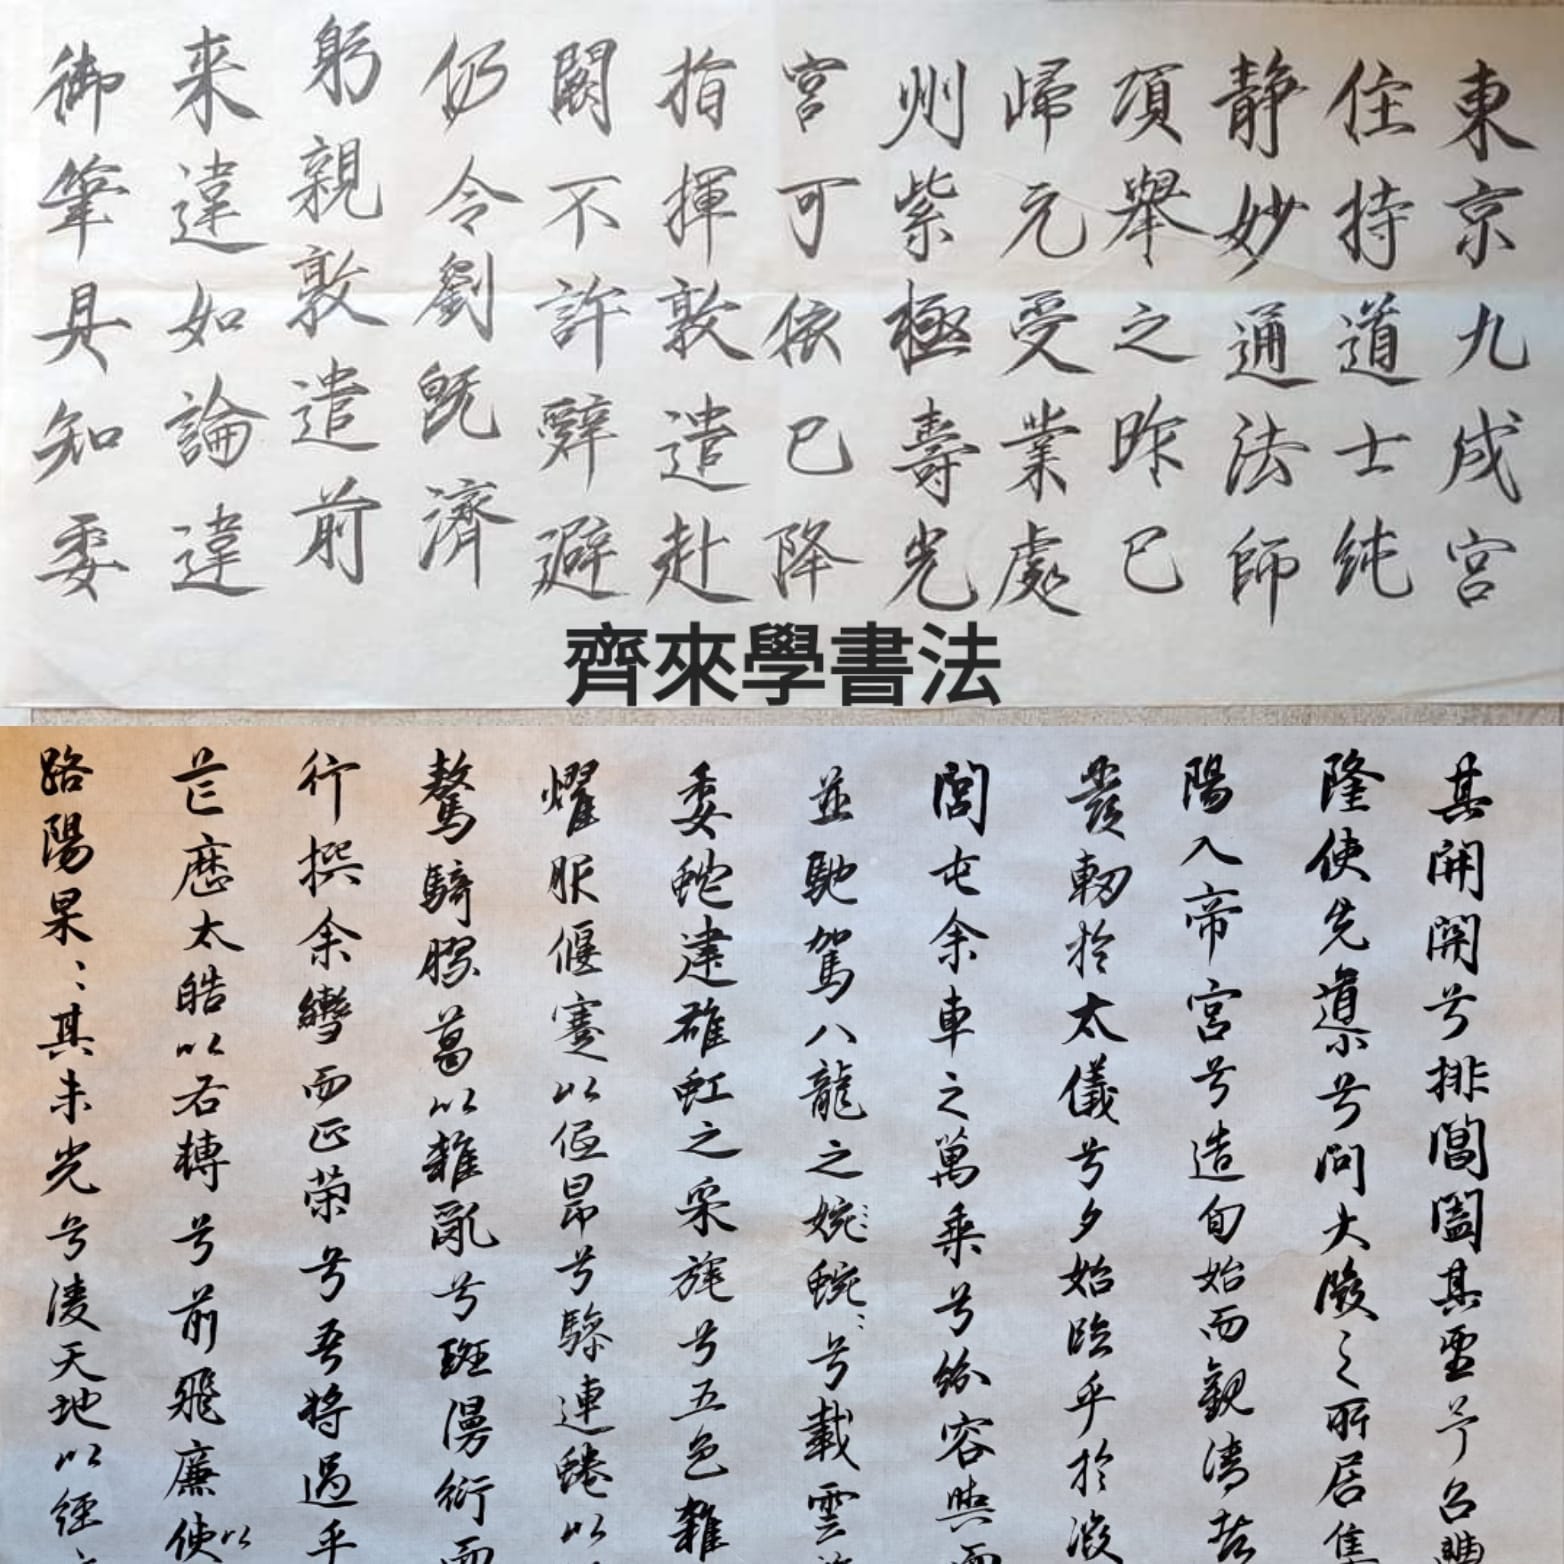 東京九成宮
住持道士純
静妙通法師
項舉之昨已
歸元受業處
州紫極壽光
宮可依已降
指揮敦遣赴
闕不許辭避
仍令劉既濟
躬親敦遣前
来違如論違
御筆具知委
齊來學書法
其開関兮排閶闔其望兮召
隆使先導兮問大微之所居集
陽入帝宮兮造旬始而觀清都
發軔於太儀兮夕始臨乎於微
閭屯余車之萬乘兮紛容與而
並馳駕八龍之婉蜿兮載雲
委蛇建雄虹之采旄兮五色雜
燿服偃蹇以低昂兮驂連蜷以
驁騎膠葛以雜亂兮斑漫衍而
行撰余轡而正策兮吾將過乎
芒歷太皓以右轉兮前飛廉使以
路陽杲:其未光兮淩天地以經